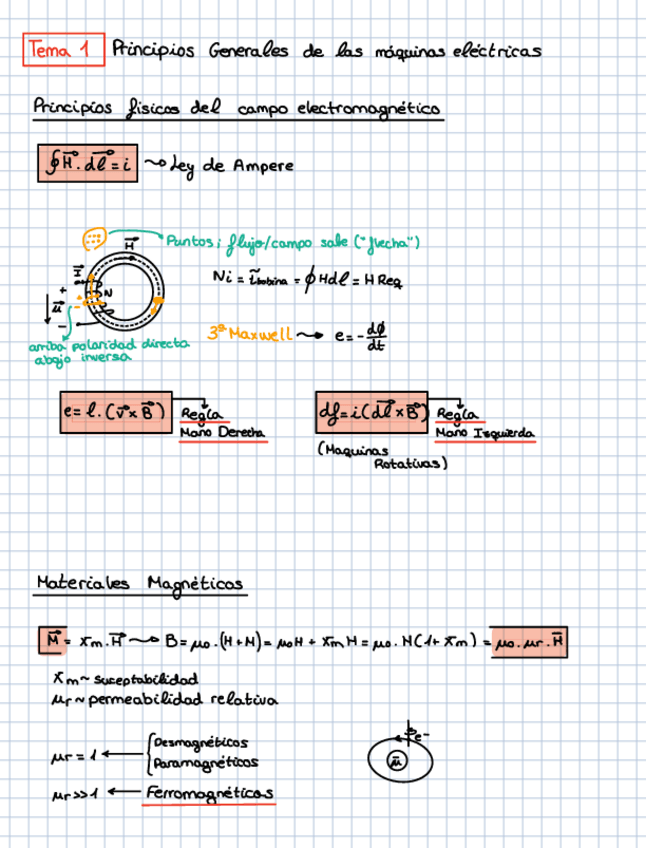 Tema 1 Principios Generales de las máquinas eléctricas
Principios físicos del campo electromagnético
∮H⃗.dl⃗=i ~> Ley de Ampere
Puntos; flujo/campo sale ("flecha")
H⃗
H⃗
Ni = i bobina = ∮Hdl = H Req
+
N
μ⃗
-
3ª Maxwell ~> e=-dϕ/dt
arriba polaridad directa
abajo inversa
e= l.(v⃗×B⃗) Regla
Mano Derecha
df=i(dl⃗×B⃗) Regla
Mano Izquierda
(Maquinas
Rotativas)
Materiales Magnéticos
M⃗ = χm.H⃗ ~> B=μo.(H+M)= μoH + χmH = μo.H(1+χm) = μo.μr.H⃗
χm~ suceptabilidad
μr ~ permeabilidad relativa
μr = 1 ← Desmagnéticos
Paramagnéticos
μr>>1 ← Ferromagnéticos
e-
μ⃗